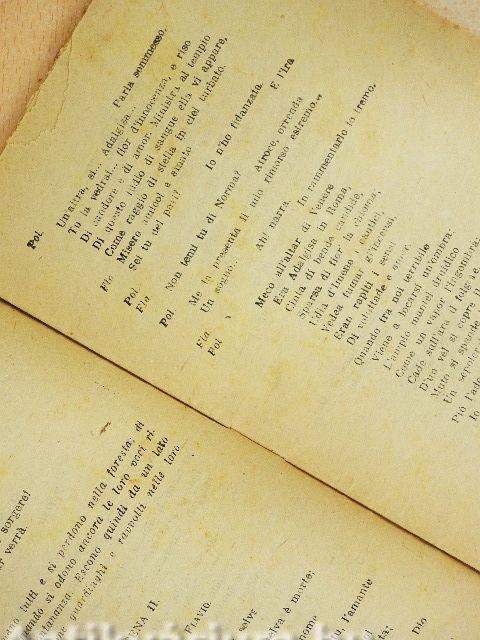 sorgere!
verrà.
tutti e si perdono nella foresta; di
quando si odono ancora le loro voci ri-
nanza. Escono quindi da un lato
guardinghi e ravvolti nelle loro
ENA II.
FLAVIO.
selva è morte;
l'amante
Dio
Parla sommesso.
Pol. Un'altra, sì... Adalgisa...
Tu la vedrai... fior d'innocenza, e riso
Di candore e di amor. Ministra al tempio
Di questo Iddio di sangue ella vi appare,
Come raggio di stella in ciel turbato.
Fla Misero amico! e amato
Sei tu del pari?
Pol. Io n'ho fidanza.
Fla E l'ira
Non temi tu di Norma?
Pol. Atroce, orrenda
Me la presenta il mio rimorso estremo...
Un sogno,
Fla Ah! narra.
Pol In rammentarlo io tremo.
Meco all'altar di Venere
Era Adalgisa in Roma,
Cinta di bende candide,
Sparsa di fior la chioma;
Udia d'Imene i cantici,
Vedea fumar gl'incensi,
Eran rapiti i sensi
Di voluttade e amore.
Quando tra noi terribile
Viene a locarsi un'ombra:
L'ampio mantel druidico
Come un vapor l'ingombra:
Cade sull'ara il folgore,
D'un vel si copre il
Muto si spande
Un sepolcr
Più l'ado
Io